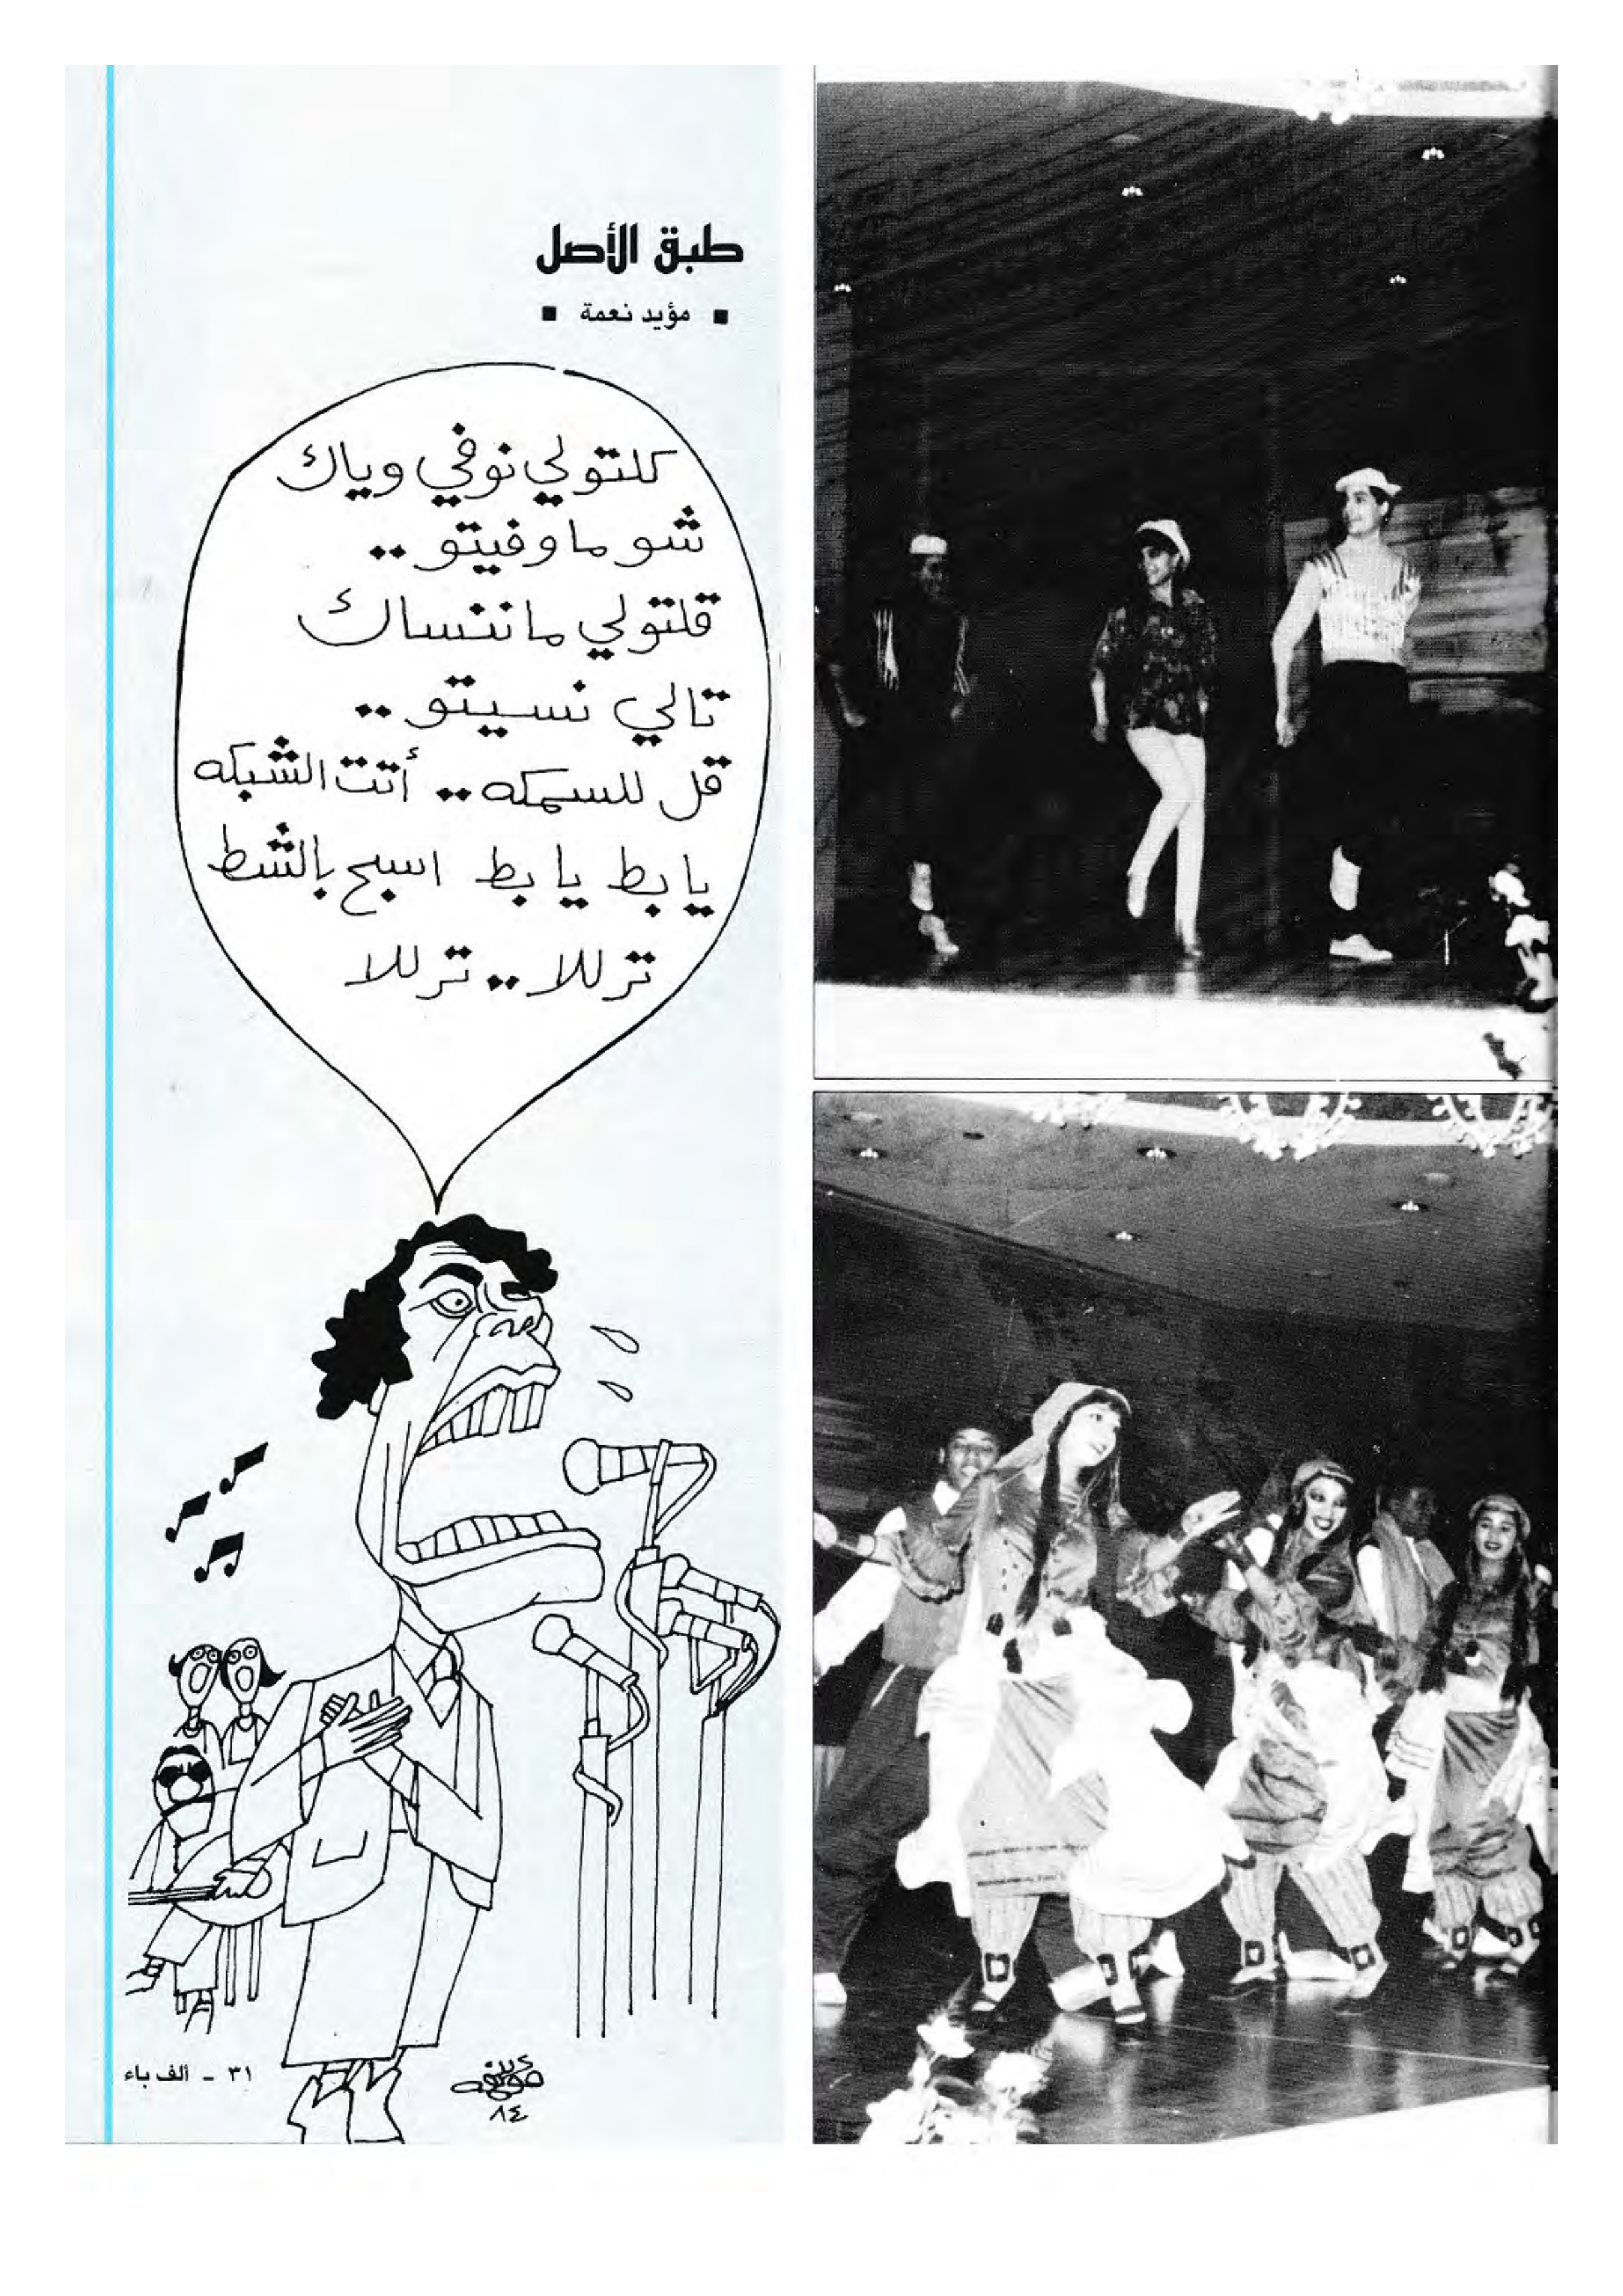 طبق الأصل
■ مؤيد نعمة ■
كلتولي نوفي وياك
شو ما وفيتو ..
قلتولي ما ننساك
تالي نسيتو ..
قل للسمكه .. أتت الشبكه
يا بط يا بط اسبح بالشط
تر للا .. تر للا
مؤيد
٨٤
٣١ - ألف باء